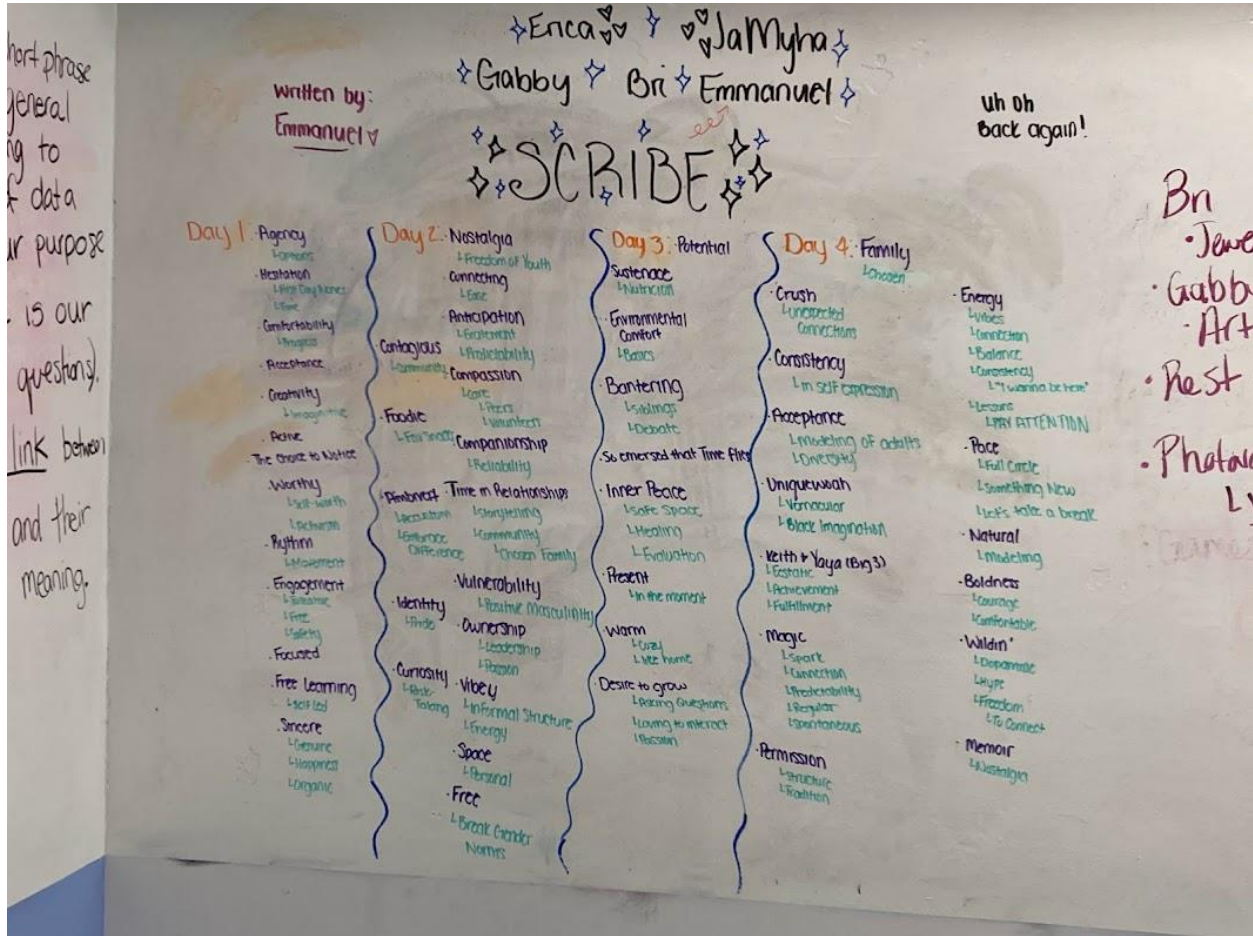 hort phrase
general
ng to
f data
ur purpose
is our
questions).
link between
and their
meaning.
Erica JaMyha
Gabby Bri Emmanuel
written by:
Emmanuel
uh oh
Back again!
SCRIBE
Day 1:
Agency
Options
Hesitation
First Day Nerves
Time
Comfortability
Progress
Acceptance
Creativity
Imaginative
Active
The Choice to Notice
Worthy
Self-Worth
Activism
Rythm
Movement
Engagement
Free
Safety
Focused
Free Learning
self led
Sincere
Genuine
Happiness
Organic
Day 2:
Contagious
Community
Foodie
Accustom
Embrace
Difference
Identity
Pride
Curiosity
Risk-
Taking
Nostalgia
Freedom of Youth
Connecting
Ease
Anticipation
Excitement
Predictability
Compassion
Care
Peers
Volunteers
Companionship
Reliability
Time in Relationships
Storytelling
Community
Chosen Family
Vulnerability
Positive Masculinity
Ownership
Leadership
Passion
Vibey
Informal Structure
Energy
Space
Personal
Free
Break Gender
Norms
Day 3: Potential
Sustenace
Nutricion
Environmental
Comfort
Basics
Bantering
Siblings
Debate
So emersed that Time flies
Inner Peace
Safe Space
Healing
Evaluation
Present
In the moment
Warm
Cozy
like home
Desire to grow
Asking Questions
Loving to interact
Passion
Day 4: Family
Chosen
Crush
unexpected
Connections
Consistency
in self expression
Acceptance
Modeling of adults
Diversity
Uniquewoah
Vernacular
Black Imagination
Keith + Yaya (Big 3)
Ecstatic
Achievement
Fulfillment
Magic
Spark
Connection
Predictability
Regular
Spontaneous
Permission
Structure
Tradition
Energy
Vibes
Connection
Balance
Consistency
"I wanna be here"
Lessons
PAY ATTENTION
Pace
Full Circle
Something New
Let's take a break
Natural
Modeling
Boldness
Courage
Comfortable
Wildin'
Dopamine
Hype
Freedom
To Connect
Memoir
Nostalgia
Bri
Jewe
Gabby
Art
Rest
Photov